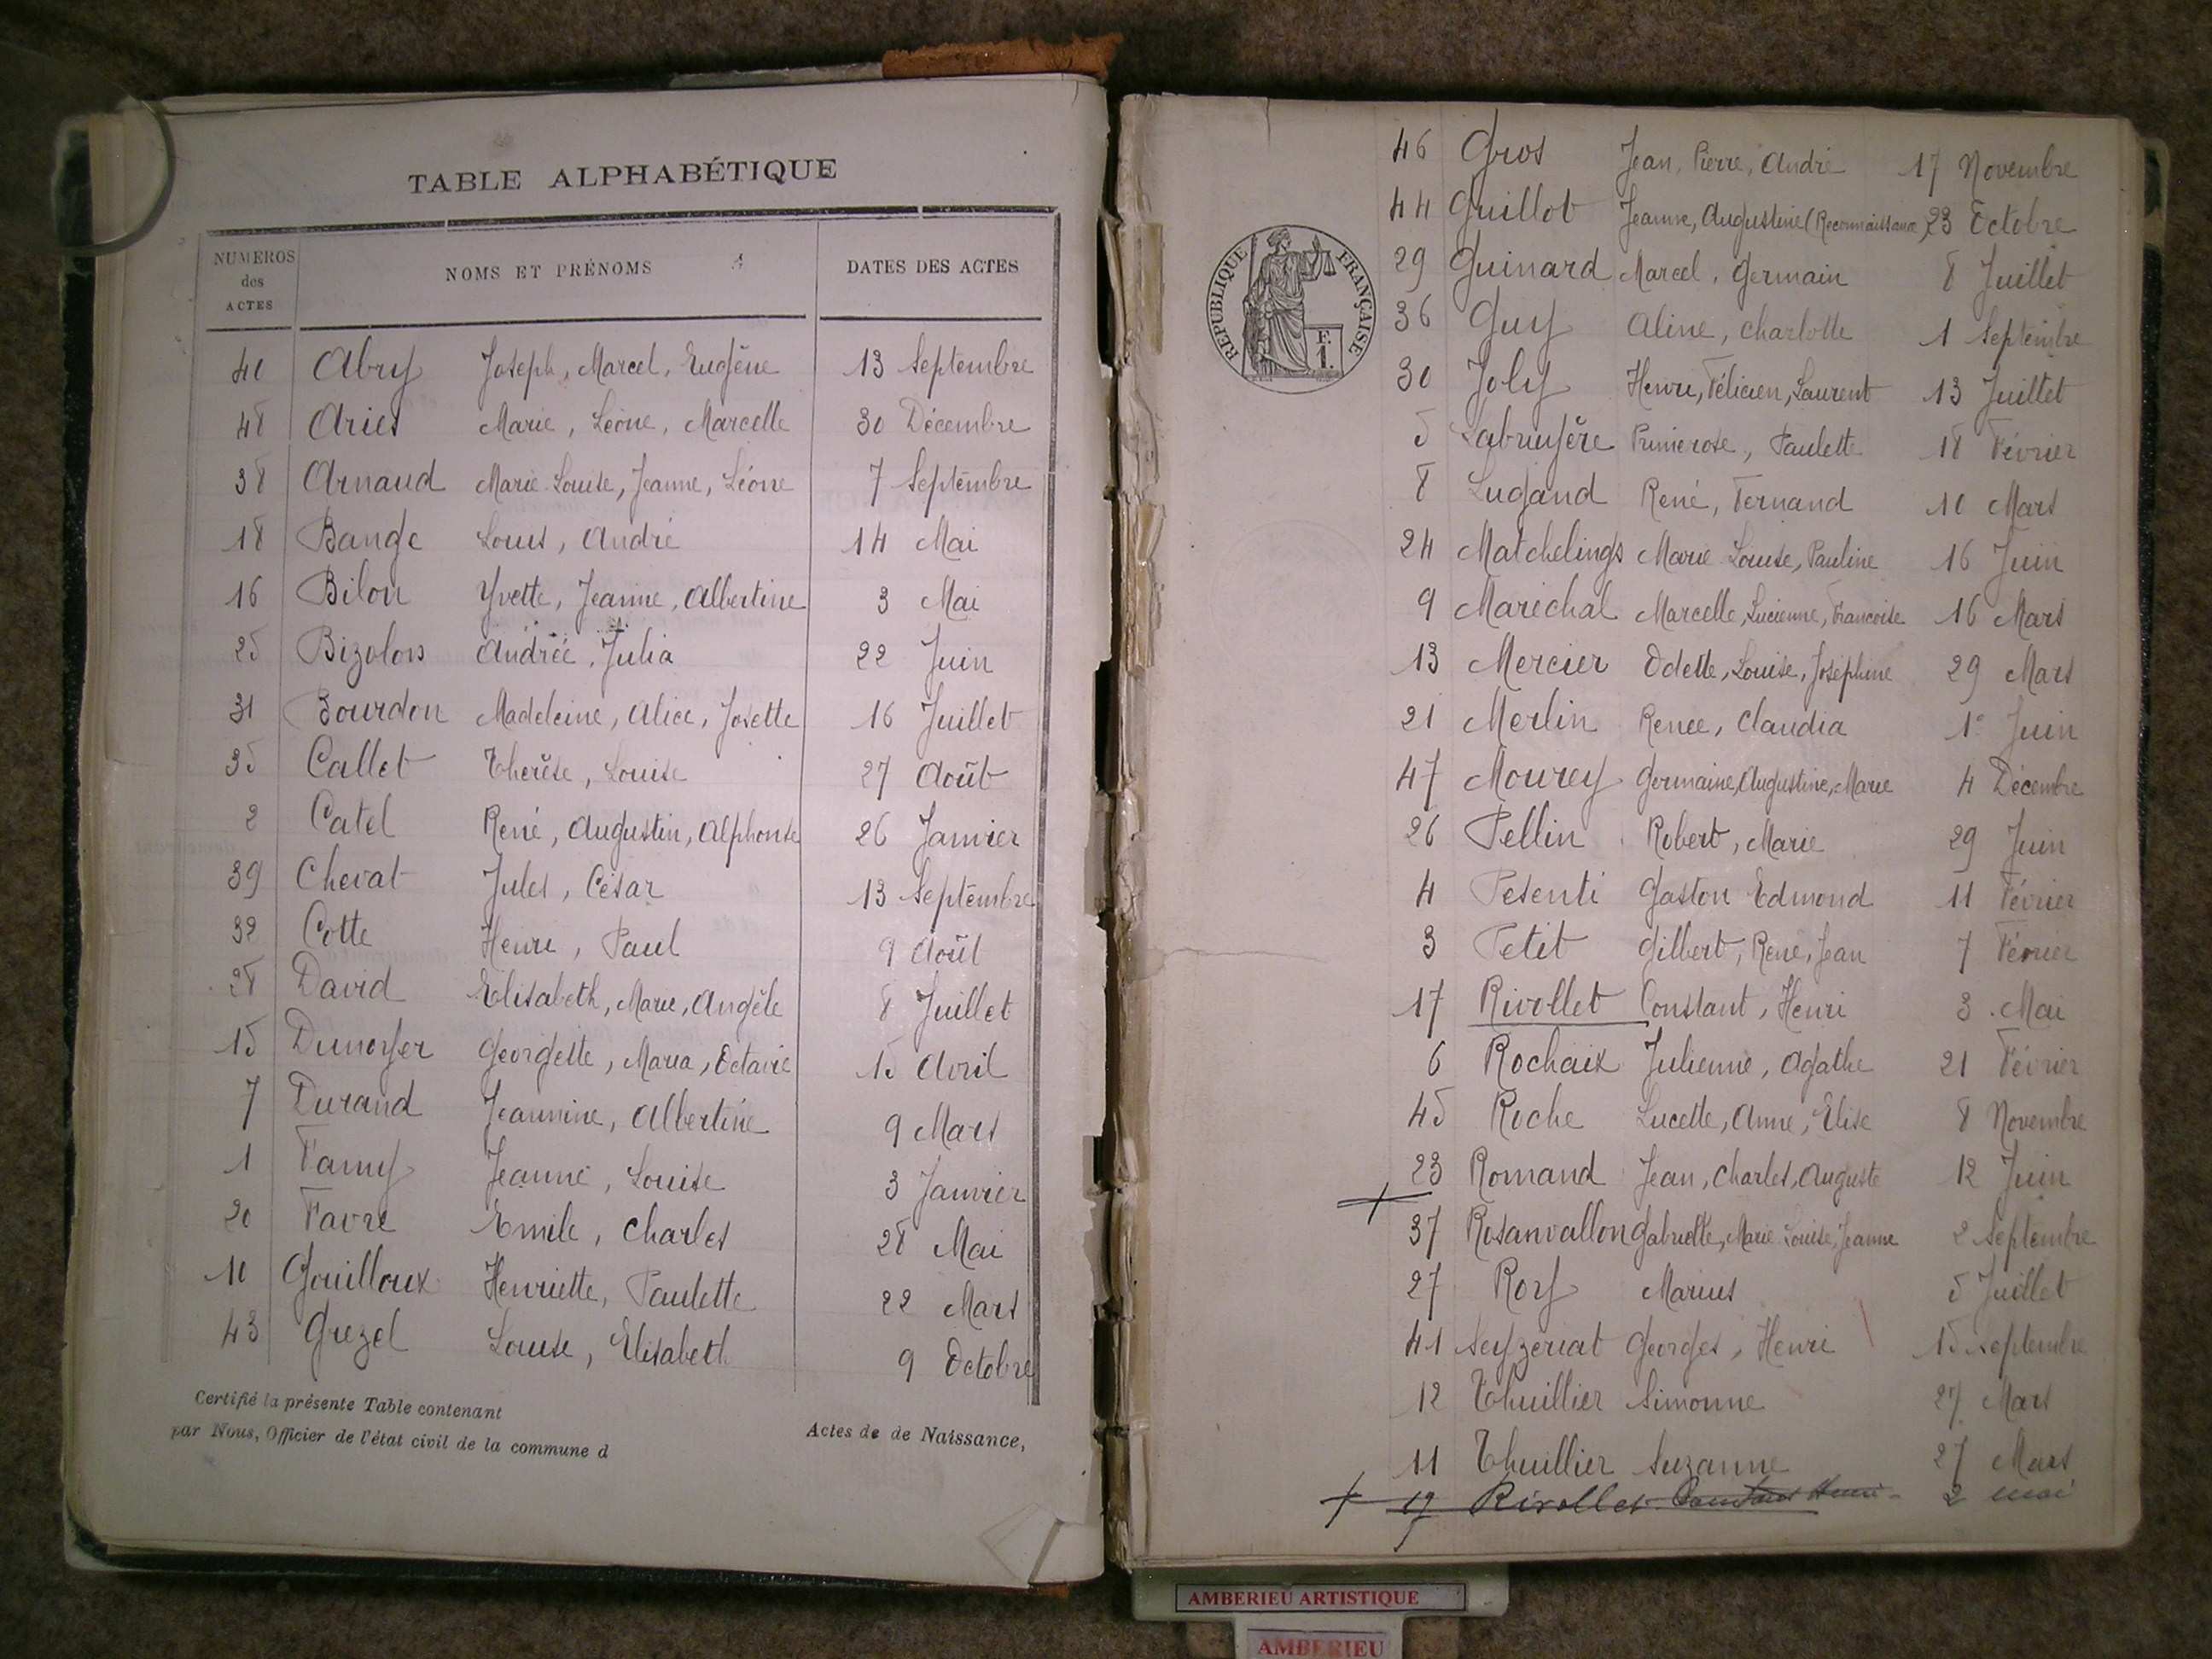 TABLE ALPHABÉTIQUE
NUMEROS des ACTES NOMS ET PRÉNOMS DATES DES ACTES
40 Abry Joseph, Marcel, Eugène 13 Septembre
48 Aries Marie, Léone, Marcelle 30 Décembre
38 Arnaud Marie-Louise, Jeanne, Léone 7 Septembre
18 Bange Louis, André 14 Mai
16 Bilon Yvette, Jeanne, Albertine 3 Mai
25 Bizolon Andrée, Julia 22 Juin
31 Bourdon Madeleine, Alice, Josette 16 Juillet
35 Callet Thérèse, Louise 27 Août
2 Catel René, Augustin, Alphonse 26 Janvier
39 Chevat Jules, César 13 Septembre
32 Cotte Henri, Paul 9 Août
28 David Elisabeth, Marie, Angèle 8 Juillet
15 Dunoyer Georgette, Maria, Octavie 15 Avril
7 Durand Jeannine, Albertine 9 Mars
1 Famy Jeanne, Louise 3 Janvier
20 Favre Emile, Charles 28 Mai
10 Gouilloux Henriette, Paulette 22 Mars
43 Grezel Louise, Elisabeth 9 Octobre
Certifié la présente Table contenant Actes de de Naissance,
par Nous, Officier de l'état civil de la commune d
RÉPUBLIQUE FRANÇAISE
F.
1.
46 Gros Jean, Pierre, André 17 Novembre
44 Guillot Jeanne, Augustine (Reconnaissance) 23 Octobre
29 Guinard Marcel, Germain 8 Juillet
36 Guy Aline, Charlotte 1 Septembre
30 Joly Henri, Félicien, Laurent 13 Juillet
5 Labruyère Primerose, Paulette 18 Février
8 Lugand René, Fernand 10 Mars
24 Matchelings Marie-Louise, Pauline 16 Juin
9 Maréchal Marcelle, Lucienne, Francoise 16 Mars
13 Mercier Odette, Louise, Joséphine 29 Mars
21 Merlin Renée, Claudia 1° Juin
47 Mourey Germaine, Augustine, Marie 4 Décembre
26 Pellin Robert, Marie 29 Juin
4 Pesenti Gaston Edmond 11 Février
3 Petit Gilbert, René, Jean 7 Février
17 Rivollet Constant, Henri 3 Mai
6 Rochaix Julienne, Agathe 21 Février
45 Roche Lucette, Anne, Elise 8 Novembre
23 Romand Jean, Charles, Auguste 12 Juin
37 Rosanvallon Gabrielle, Marie-Louise, Jeanne 2 Septembre
27 Roy Marius 5 Juillet
41 Seyzeriat Georges, Henri 15 Septembre
12 Thuillier Simonne 27 Mars
11 Thuillier Suzanne 27 Mars
17 Rivollet Constant Henri 2 mai
AMBERIEU ARTISTIQUE
AMBERIEU